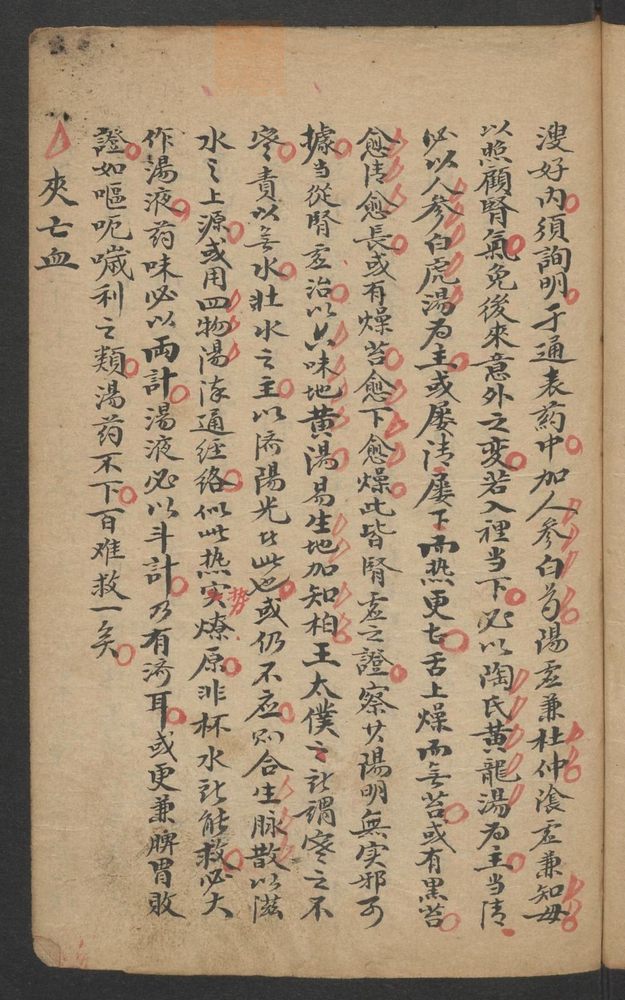 溲好内須詢明于通表药中加人參白芍陽虛兼杜仲陰虛兼知母
以照顧腎氣免後來意外之变若入裡当下必以陶氏黄龍湯为主当清
必以人參白虎湯为主或屡清屡下而热更甚舌上燥而無苔或有黑苔
愈清愈長或有燥苔愈下愈燥此皆腎虛之證察其陽明無实邪可
據当從腎虛治以六味地黄湯易生地加知柏王太僕之所謂寒之不
寒責以無水壯水之主以济陽光此也或仍不应则合生脉散以滋
水之上源或用四物湯流通经络似此热实燎原非杯水所能救必大
势
作湯液药味必以两計湯液必以斗計乃有济耳或更兼脾胃敗
證如嘔呃噦利之類湯药不下百难救一矣
夾亡血